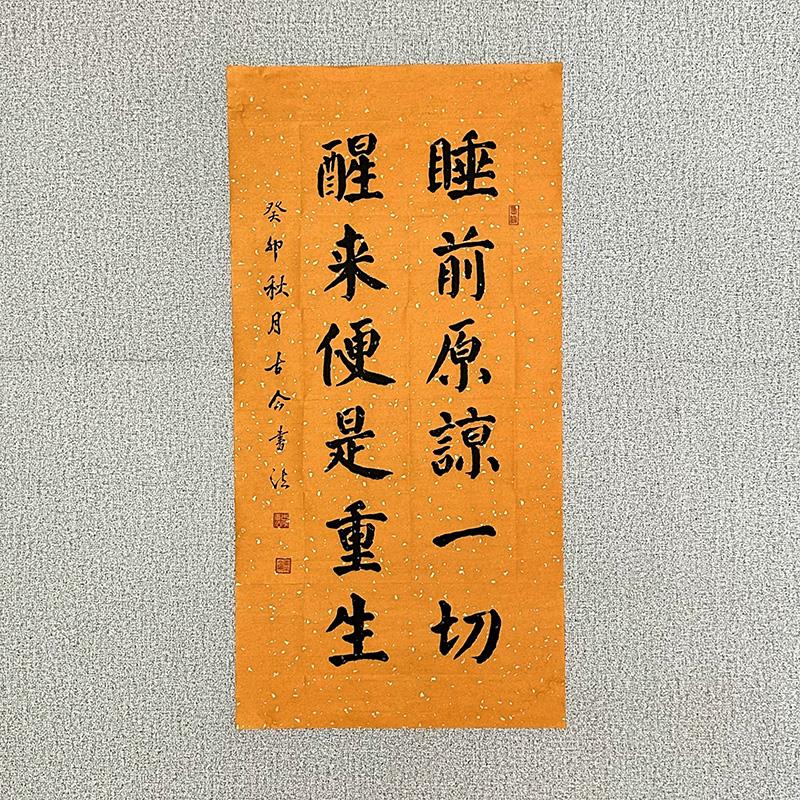 睡前原諒一切
醒来便是重生
癸卯秋月古今书法